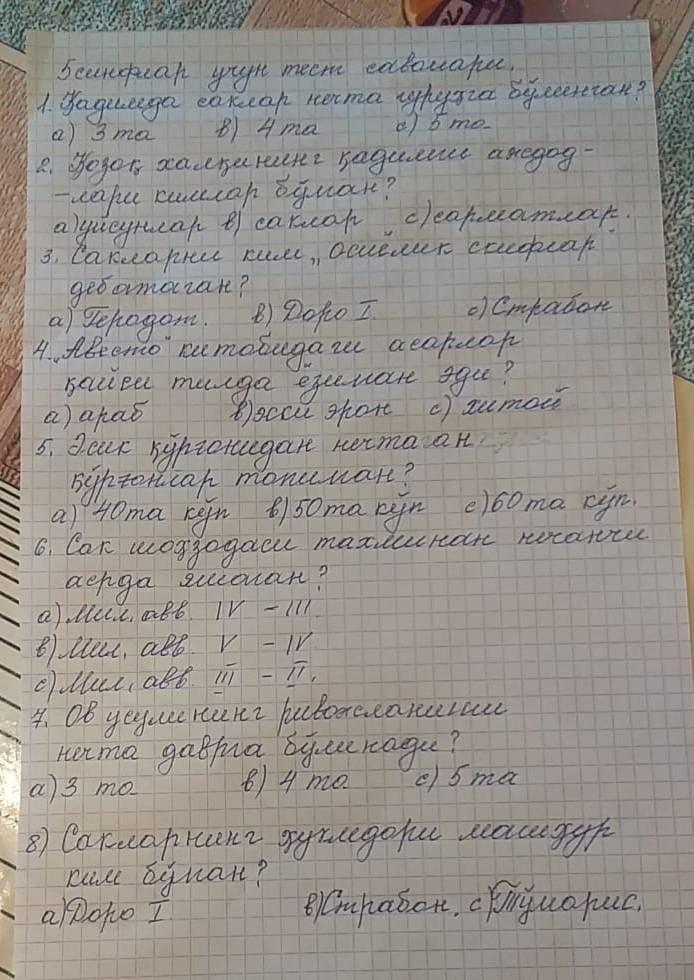 5 синфлар учун тест саволлари.
1. Қадимда саклар нечта гуруҳга бўлинган?
а) 3 та в) 4 та с) 5 та
2. Қозоқ халқининг қадимги аждод-
-лари кимлар бўлган?
а) уйсунлар в) саклар с) сарматлар.
3. Сакларни ким „осиёлик скифлар"
деб атаган?
а) Геродот. в) Доро I. с) Страбон
4. „Авесто" китобидаги асарлар
қайси тилда ёзилган эди?
а) араб в) эски эрон с) хитой
5. Эсик қўрғонидан нечтаган
қўрғонлар топилган?
а) 40 та кўп в) 50 та кўп с) 60 та кўп.
6. Сак шоҳзодаси тахминан нечанчи
асрда яшаган?
а) Мил. авв. IV - III
в) Мил. авв. V - IV
с) Мил. авв. III - II.
7. Ов усулининг ривожланиши
нечта даврга бўлинади?
а) 3 та в) 4 та с) 5 та
8) Сакларнинг ҳукмдори машҳур
ким бўлган?
а) Доро I. в) Страбон. с) Тўмарис.